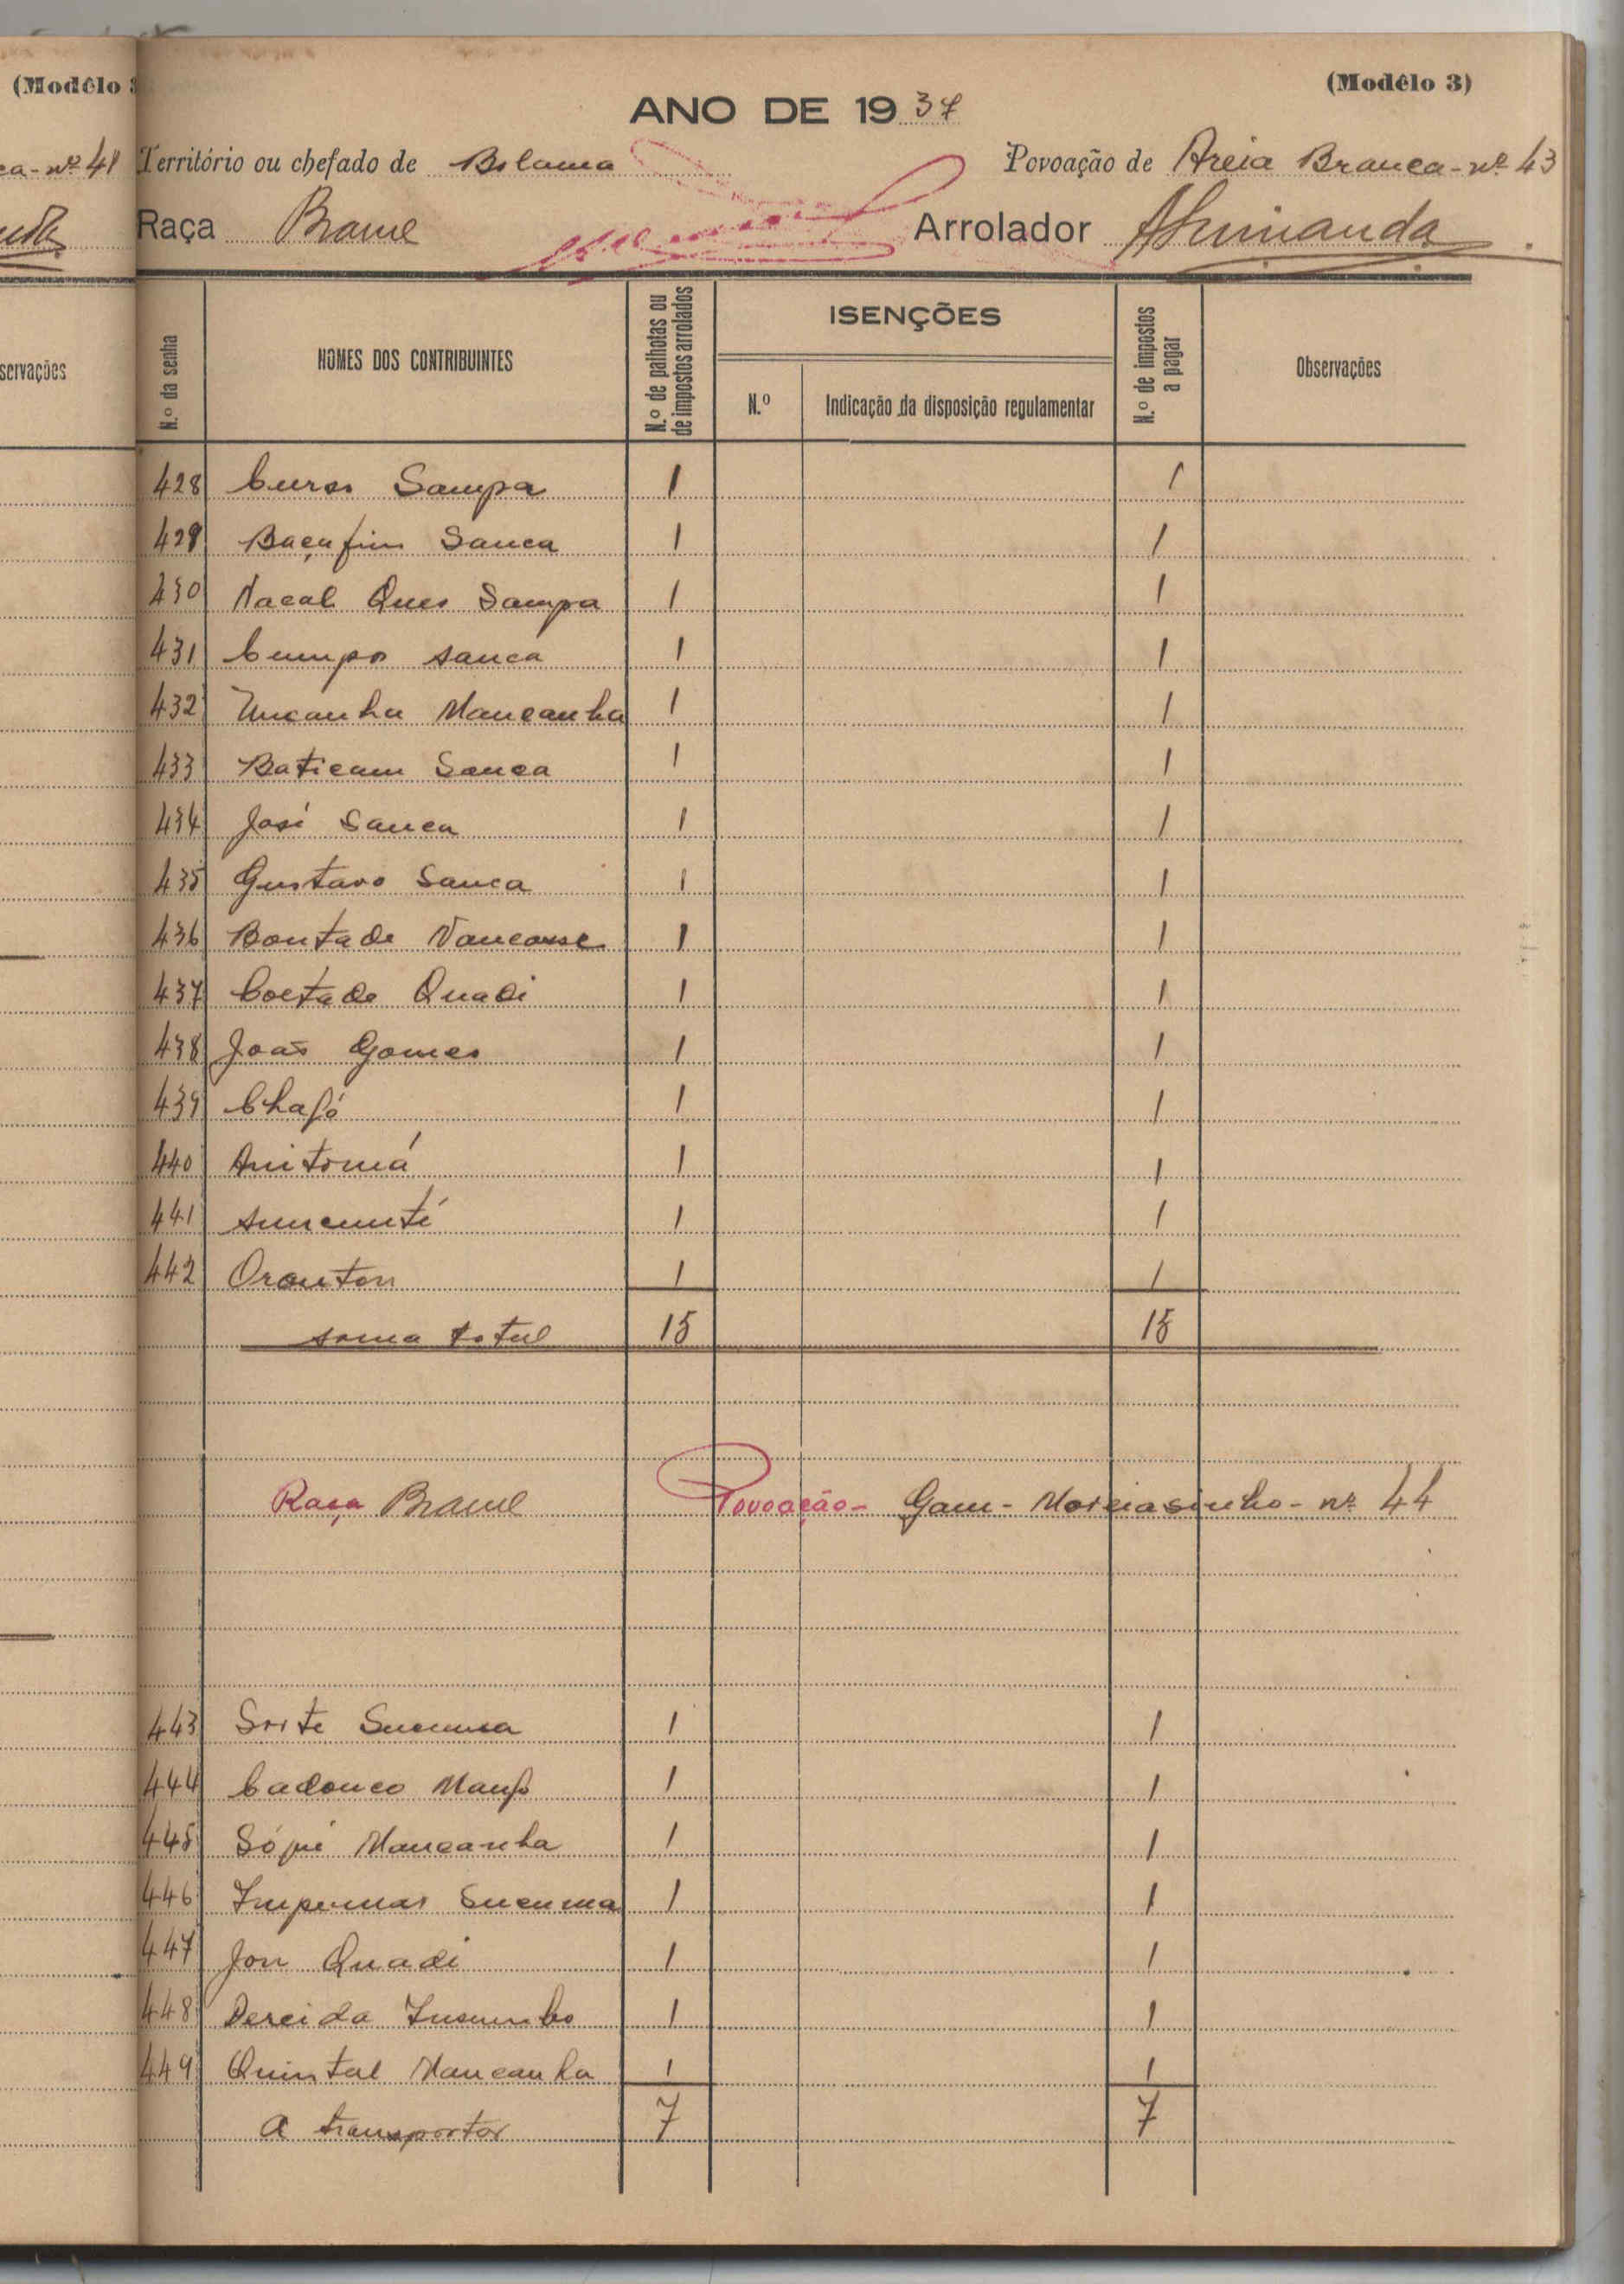 (Modêlo 3)
ANO DE 1937
Território ou chefado de Bolama Povoação de Areia Branca - nº 43
Raça Brame Arrolador
N.º da senha NOMES DOS CONTRIBUINTES N.º de palhotas ou de impostos arrolados ISENÇÕES N.º Indicação da disposição regulamentar N.º de impostos a pagar Observações
428 Sampa 1 1
429 Baçufim Sanca 1 1
430 Nacal Ques Sampa 1 1
431 Cumpor Sanca 1 1
432 Uncanha Mancanha 1 1
433 Baticam Sanca 1 1
434 José Sanca 1 1
435 Gustavo Sanca 1 1
436 Bontade Vancasse 1 1
437 Coetado Quadi 1 1
438 João Gomes 1 1
439 1 1
440 Anitomá 1 1
441 1 1
442 Oranton 1 1
soma total 15 15
Raça Brame Povoação - Gam - - nº 44
443 Sorte Sucuma 1 1
444 Cadouco 1 1
445 Mancanha 1 1
446 Impermar Sucuma 1 1
447 Jon Quadi 1 1
448 Dereida 1 1
449 Quintal Mancanha 1 1
A transportar 7 7
(Modêlo
ca - nº 41
servações